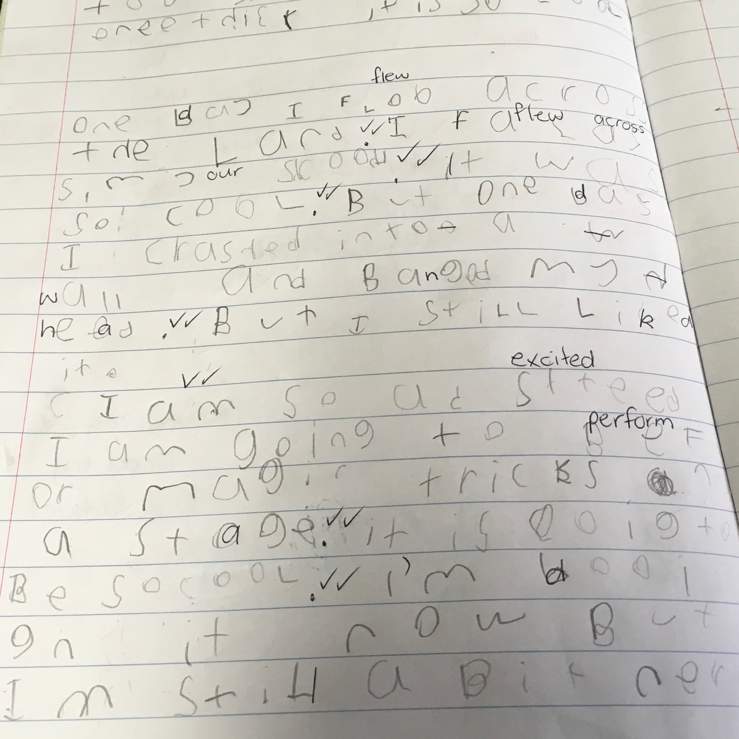 one day I FLOB acros
flew
the Land ✓✓ I F a flew across
simy our skood. ✓✓ It was
so! COOL. ✓✓ But one das
I Crasted intoo a
wall and Banged my
head. ✓✓ But I still Liked
it.
✓✓ excited
I am so ad steed
I am going to perF
perform
or magic tricks
a stage. ✓✓ it is goig to
Be so cooL. ✓✓ i'm dooi
gn it now But
Im still a Bit ner